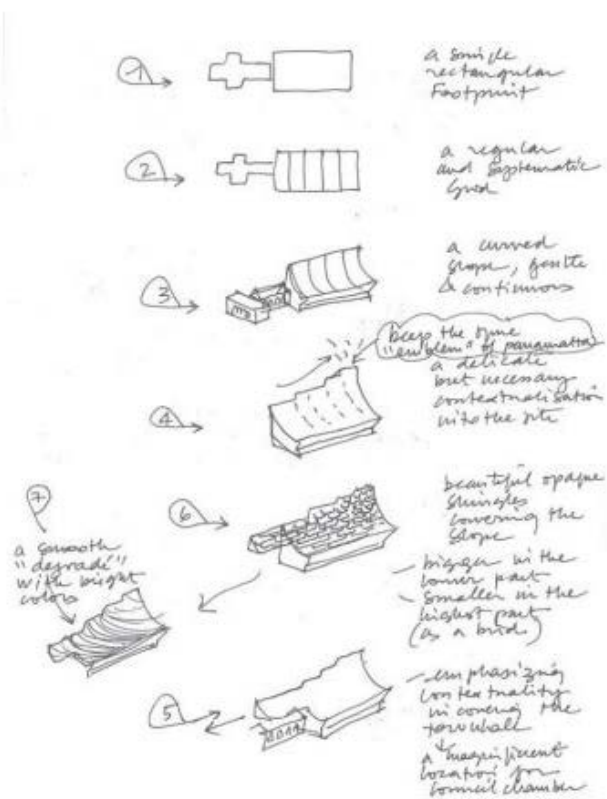 1
a single
rectangular
Footprint
2
a regular
and systematic
grid
3
a curved
slope, gentle
& continuous
keep the
"emblem" of paramatta
4
a delicate
but necessary
contextualisation
into the site
7
a smooth
"degradé"
with bright
colors
6
beautiful opaque
shingles
covering the
slope
- bigger in the
lower part
- smaller in the
highest part
(as a bird)
5
- emphasizing
contextuality
in covering the
townhall
a magnificent
location for
council chamber